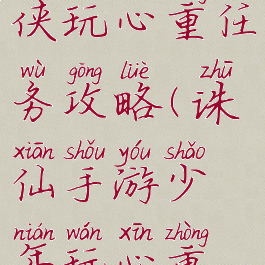 侠玩心重任
wù gōng lüè zhū
务攻略(诛
xiān shǒu yóu shǎo
仙手游少
nián wán xīn zhòng
年玩心重